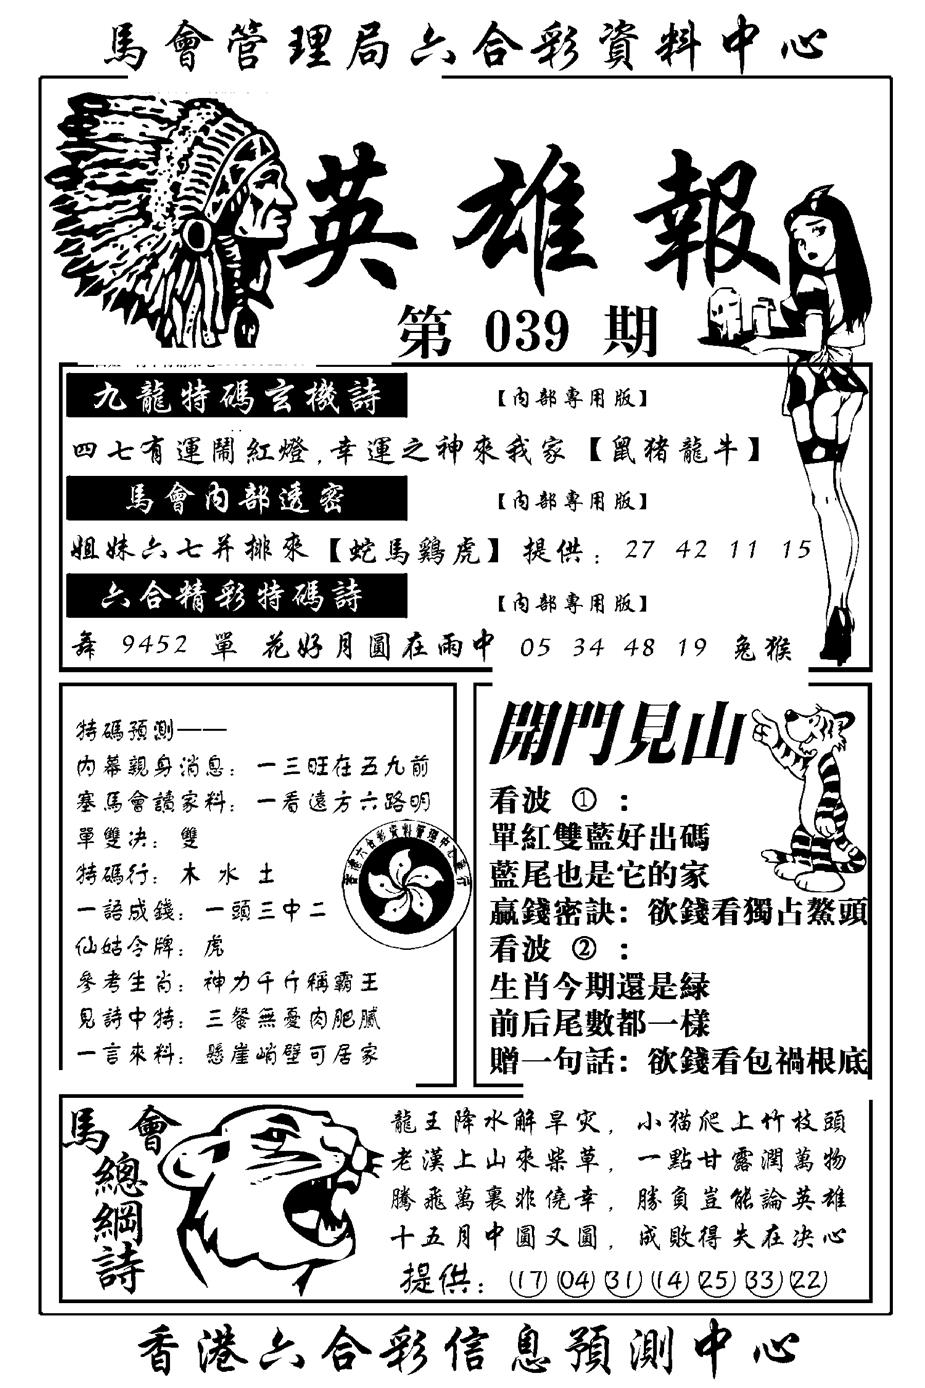 馬會管理局六合彩資料中心
英雄報
第 039 期
九龍特碼玄機詩 【內部專用版】
四七有運鬧紅燈,幸運之神來我家【鼠猪龍牛】
馬會內部透密 【內部專用版】
姐妹六七并排來【蛇馬鷄虎】 提供: 27 42 11 15
六合精彩特碼詩 【內部專用版】
舞 9452 單 花好月圓在雨中 05 34 48 19 兔猴
特碼預測——
內幕親身消息: 一三旺在五九前
塞馬會讀家料: 一看遠方六路明
單雙决: 雙
特碼行: 木 水 土
一語成錢: 一頭三中二
仙姑令牌: 虎
參考生肖: 神力千斤稱霸王
見詩中特: 三餐無憂肉肥膩
一言來料: 懸崖峭壁可居家
開門見山
看波 ① :
單紅雙藍好出碼
藍尾也是它的家
贏錢密訣: 欲錢看獨占鰲頭
看波 ② :
生肖今期還是緑
前后尾數都一樣
贈一句話: 欲錢看包禍根底
馬會
總綱詩
龍王降水解旱灾, 小猫爬上竹枝頭
老漢上山來柴草, 一點甘露潤萬物
騰飛萬裏非僥幸, 勝負豈能論英雄
十五月中圓又圓, 成敗得失在决心
提供: (17)(04)(31)(14)(25)(33)(22)
香港六合彩信息預測中心